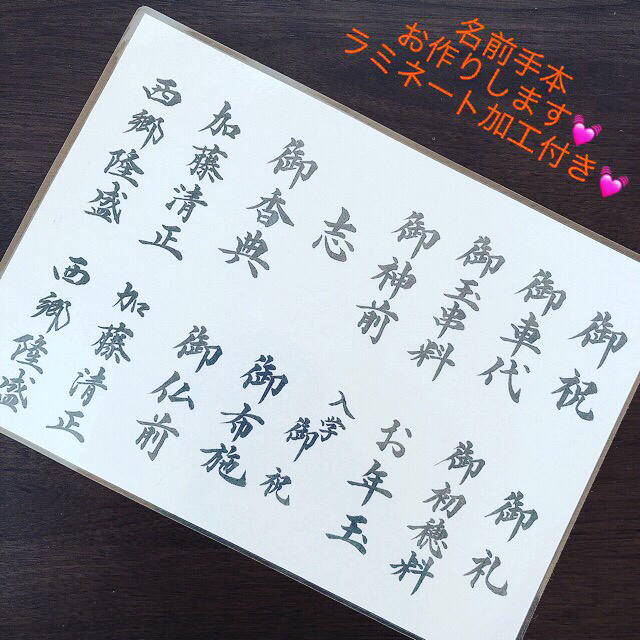 名前手本
お作りします💕
ラミネート加工付き💕
御祝
御車代
御玉串料
御神前
志
御香典
加藤清正
西郷隆盛
御礼
御初穂料
お年玉
入学御祝
御布施
御仏前
加藤清正
西郷隆盛